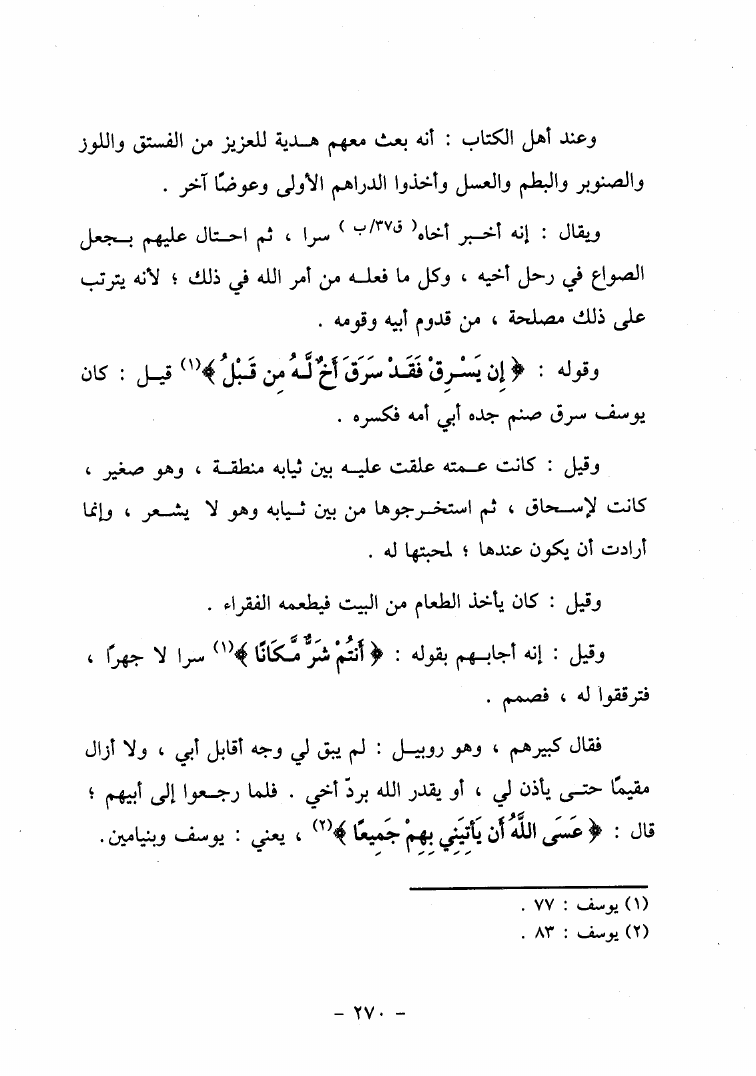 وعند أهل الكتاب : أنه بعث معهم هدية للعزيز من الفستق واللوز
والصنوبر والبطم والعسل وأخذوا الدراهم الأولى وعوضًا آخر .
ويقال : إنه أخبر أخاه( ق٣٧/ب ) سرا ، ثم احتال عليهم بجعل
الصواع في رحل أخيه ، وكل ما فعله من أمر الله في ذلك ؛ لأنه يترتب
على ذلك مصلحة ، من قدوم أبيه وقومه .
وقوله : ﴿ إِن يَسْرِقْ فَقَدْ سَرَقَ أَخٌ لَّهُ مِن قَبْلُ ﴾(١) قيل : كان
يوسف سرق صنم جده أبي أمه فكسره .
وقيل : كانت عمته علقت عليه بين ثيابه منطقة ، وهو صغير ،
كانت لإسحاق ، ثم استخرجوها من بين ثيابه وهو لا يشعر ، وإنما
أرادت أن يكون عندها ؛ لمحبتها له .
وقيل : كان يأخذ الطعام من البيت فيطعمه الفقراء .
وقيل : إنه أجابهم بقوله : ﴿ أَنتُمْ شَرٌّ مَّكَانًا ﴾(١) سرا لا جهرًا ،
فترققوا له ، فصمم .
فقال كبيرهم ، وهو روبيل : لم يبق لي وجه أقابل أبي ، ولا أزال
مقيمًا حتى يأذن لي ، أو يقدر الله بردّ أخي . فلما رجعوا إلى أبيهم ؛
قال : ﴿ عَسَى اللَّهُ أَن يَأْتِيَنِي بِهِمْ جَمِيعًا ﴾(٢) ، يعني : يوسف وبنيامين.
(١) يوسف : ٧٧ .
(٢) يوسف : ٨٣ .
- ٢٧٠ -